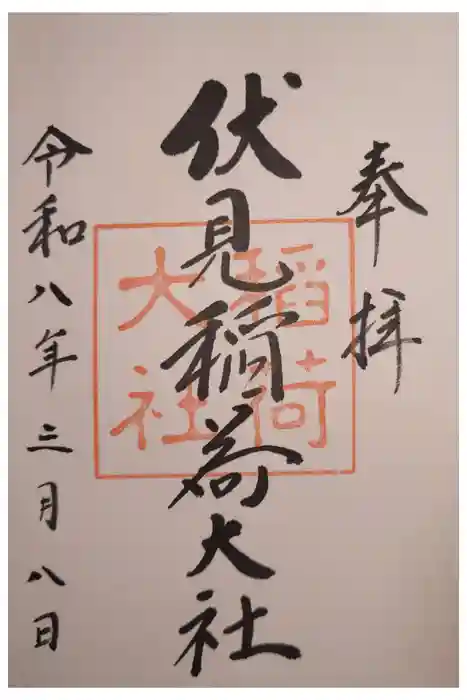 奉拝
伏見稲荷大社
稲荷大社
令和八年三月八日